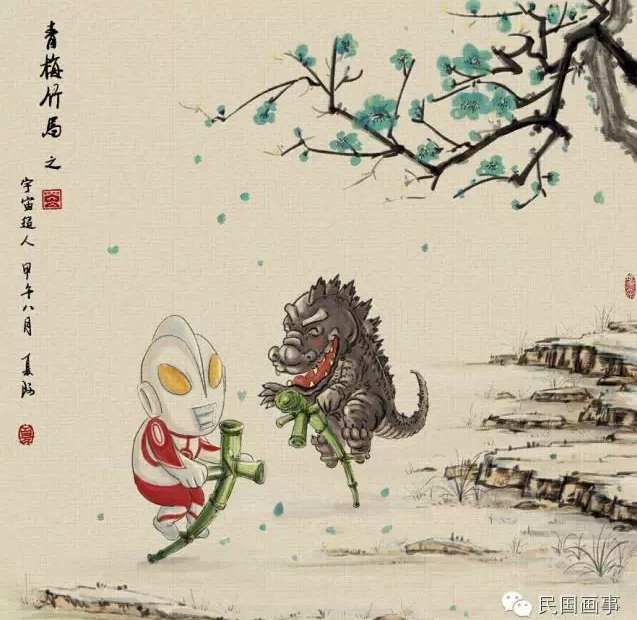 青梅竹马之
宇宙超人 甲午八月 夏阳
民国画事